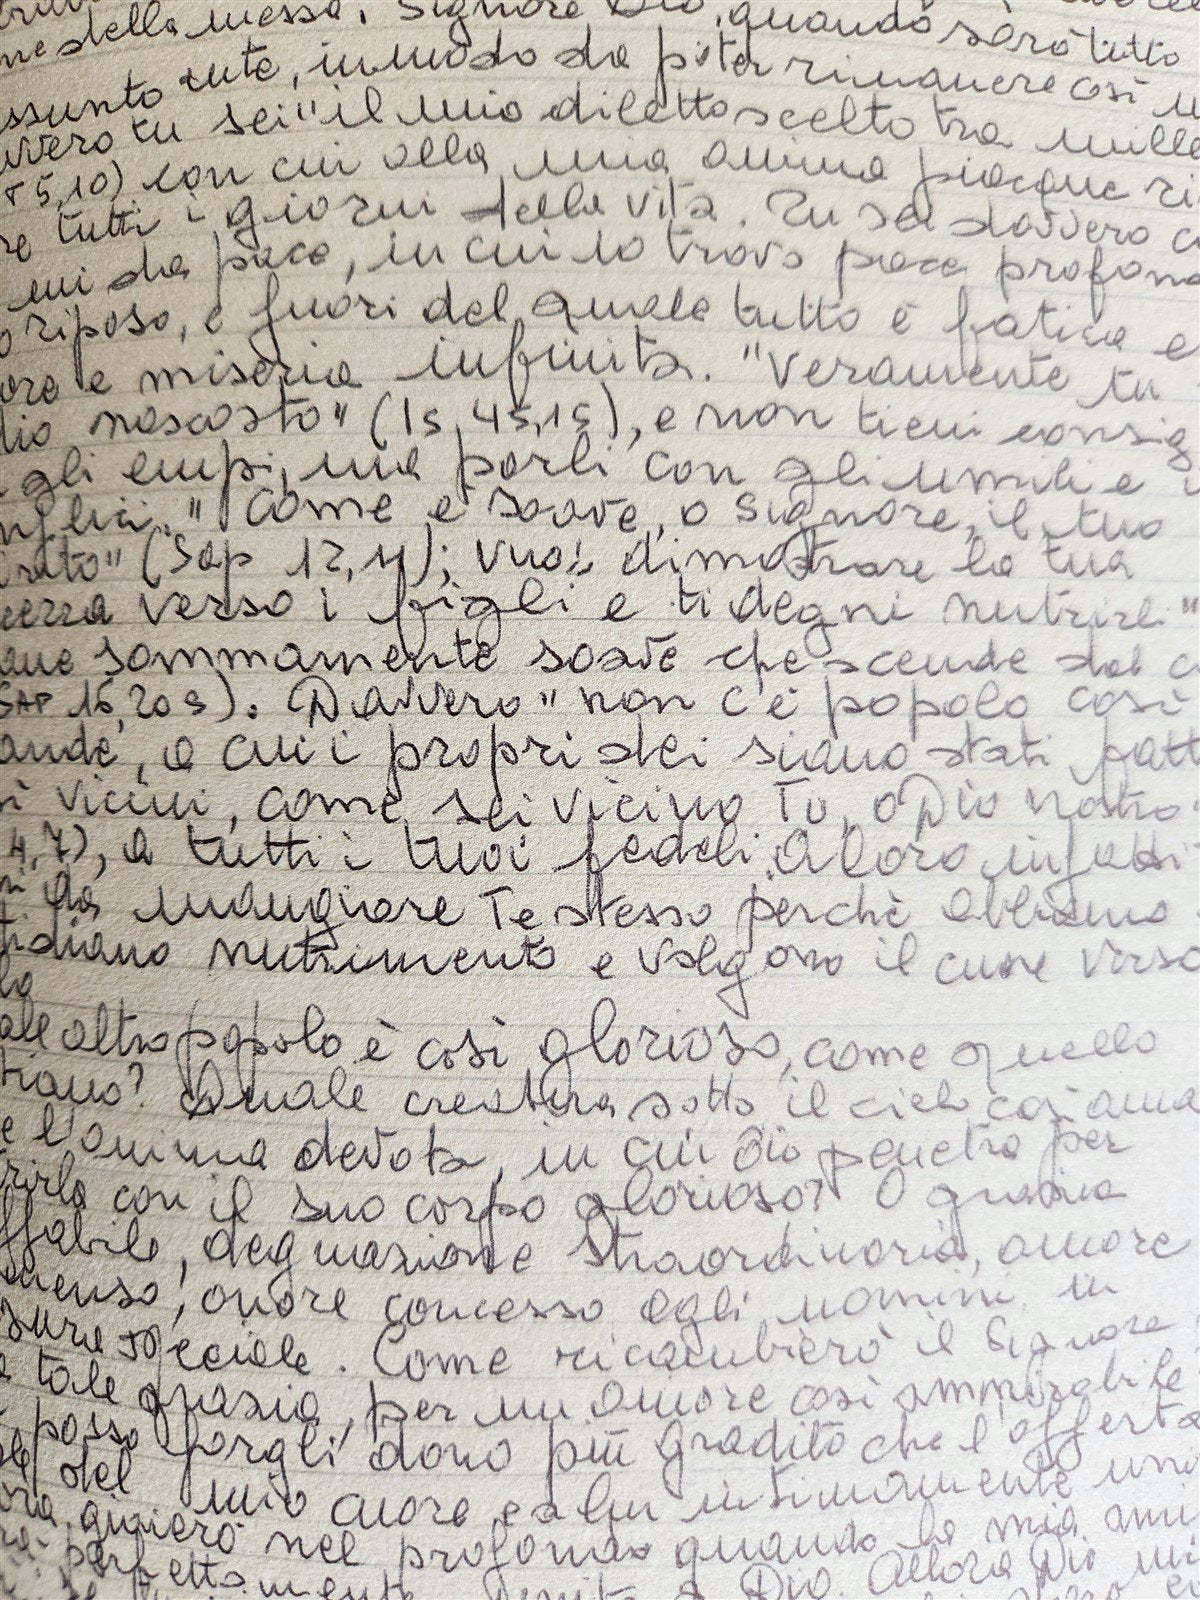 ne della messa. Signore Dio, quando sarò tutto
ssunto in te, in modo da poter rimanere così
vvero tu sei "il mio diletto scelto tra mille
T 5,10) con cui alla mia anima piacque ri
re tutti i giorni della vita. Tu sei davvero c
mi da pace, in cui io trovo pace profond
o riposo, e fuori del quale tutto è fatica e
ore e miseria infinita. "Veramente tu
dio nascosto" (Is, 45,15), e non tieni consig
gli empi, ma parli con gli umili e
mplici. "Come è soave, o Signore, il tuo
irito" (Sap 12,1); vuoi dimostrare la tua
cezza verso i figli e ti degni nutrirli "
ane sommamente soave che scende dal c
SAP 16,20s). Davvero "non c'è popolo così
ande, a cui i propri dei siano stati fatt
sì vicini, come sei vicino Tu, o Dio nostro
4,7), a tutti i tuoi fedeli. A loro infatti
ti da mangiare Te stesso perchè abbiano
tidiano nutrimento e volgono il cuore verso
lo
ale altro popolo è così glorioso, come quello
tiano? Quale creatura sotto il cielo così ama
e l'anima devota, in cui Dio penetra per
trirla con il suo corpo glorioso? O grazia
ffabile, degnazione straordinaria, amore
menso, onore concesso agli uomini in
sura speciale. Come ricambierò il Signore
a tale grazia, per un amore così ammirabile
posso fargli dono più gradito che l'offerta
del mio cuore a lui intimamente uni
ora gioierò nel profondo quando la mia ani
rà perfettamente unita a Dio. Allora Dio mi